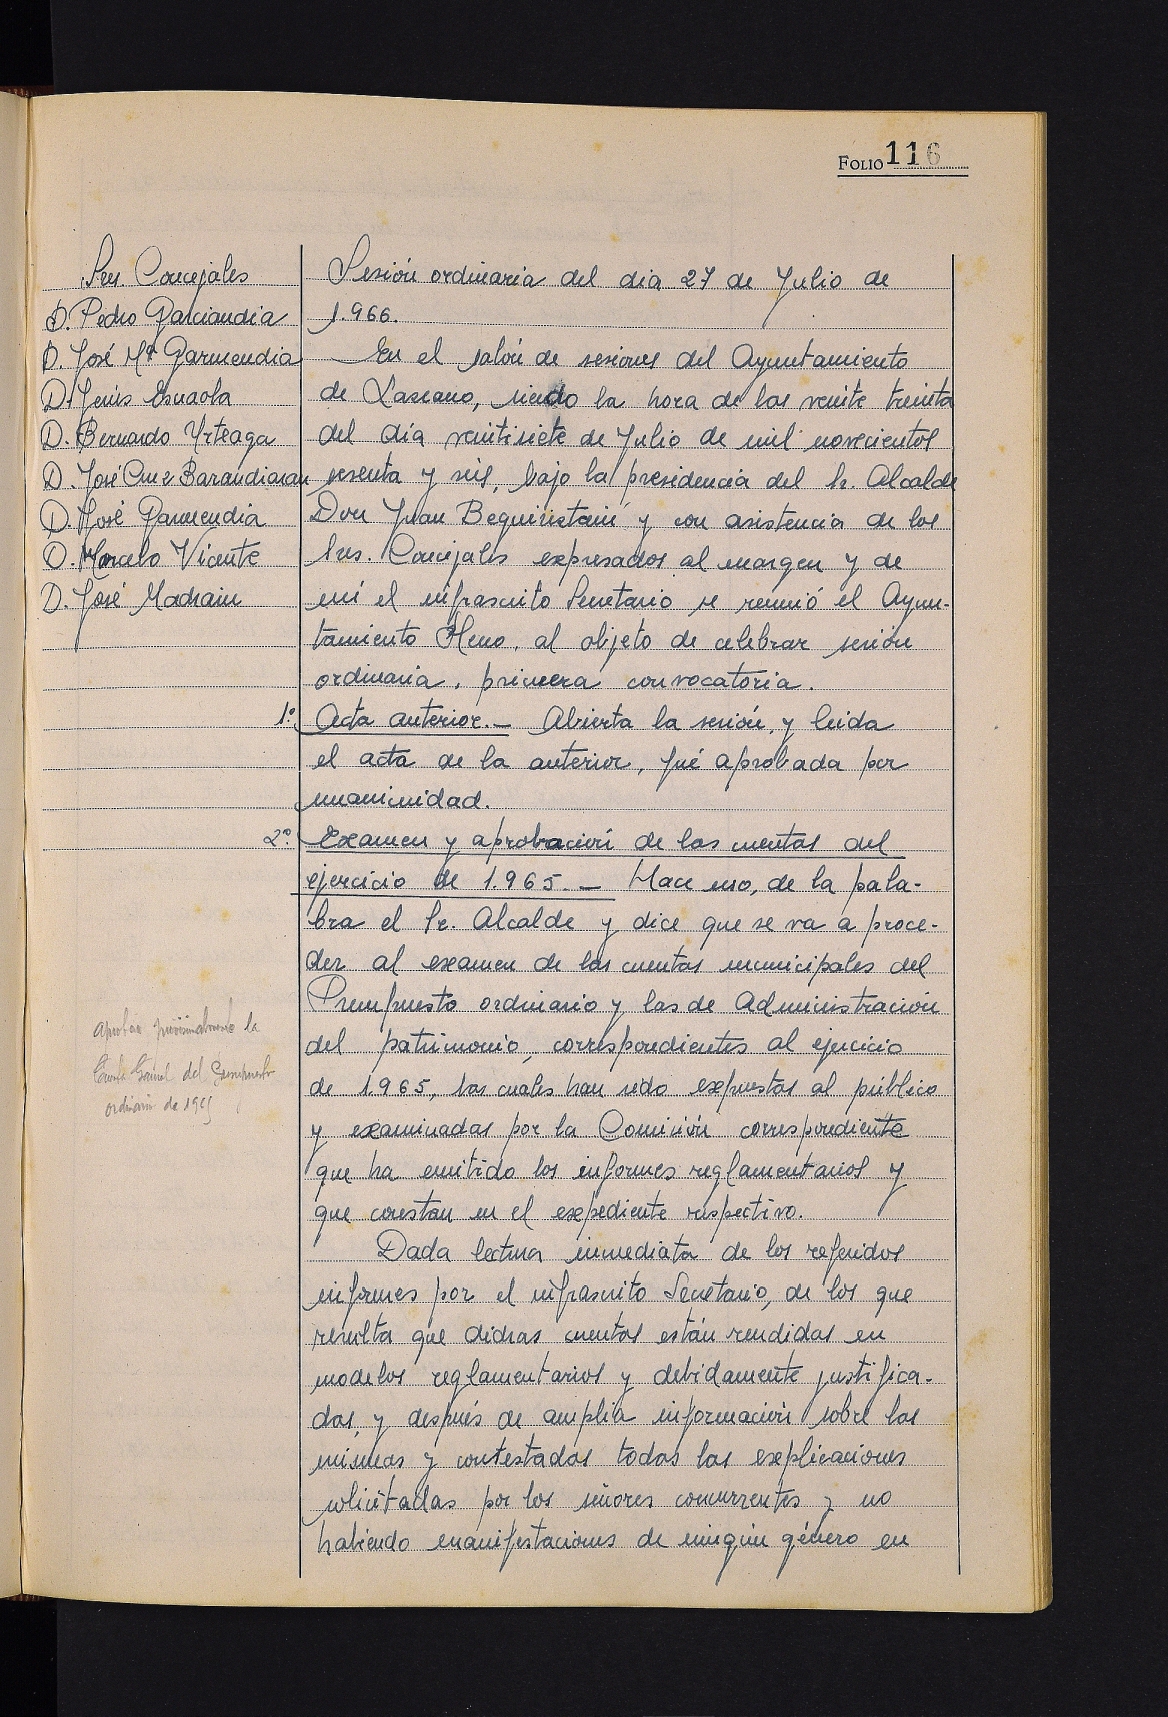 FOLIO 116
Sres Concejales
D. Pedro Garciandia
D. José Mª Garmendia
D. Jesús Esnaola
D. Bernardo Yrteaga
D. José Cruz Barandiaran
D. José Garmendia
D. Marcelo Vicente
D. José Madrain
Sesión ordinaria del dia 27 de Julio de
1.966.
En el salón de sesiones del Ayuntamiento
de Lazcano, siendo la hora de las veinte treinta
del día veintisiete de Julio de mil novecientos
sesenta y seis, bajo la presidencia del Sr. Alcalde
Don Juan Beguiristain y con asistencia de los
Sres. Concejales expresados al margen y de
mi el infrascrito Secretario se reunió el Ayun-
tamiento Pleno, al objeto de celebrar sesión
ordinaria, primera convocatoria.
1º. Acta anterior.- Abierta la sesión, y leida
el acta de la anterior, fué aprobada por
unanimidad.
2º. Examen y aprobación de las cuentas del
ejercicio de 1.965.- Hace uso, de la pala-
bra el Sr. Alcalde y dice que se va a proce-
der al examen de las cuentas municipales del
Presupuesto ordinario y las de Administración
del patrimonio, correspondientes al ejercicio
de 1.965, las cuales han sido expuestas al público
y examinadas por la Comisión correspondiente
que ha emitido los informes reglamentarios y
que constan en el expediente respectivo.
Aprobar provisionalmente la
Cuenta Gral del Presupuesto
ordinario de 1965
Dada lectura inmediata de los referidos
informes por el infrascrito Secretario, de los que
resulta que dichas cuentas están rendidas en
modelos reglamentarios y debidamente justifica-
das, y después de amplia información sobre las
mismas y contestadas todas las explicaciones
solicitadas por los señores concurrentes y no
habiendo manifestaciones de ningún género en